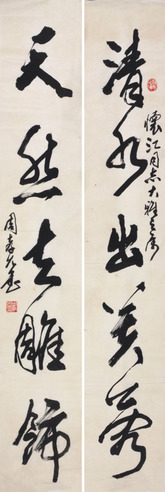 清水出芙蓉
懷江同志大雅之屬
天然去雕飾
周春如書